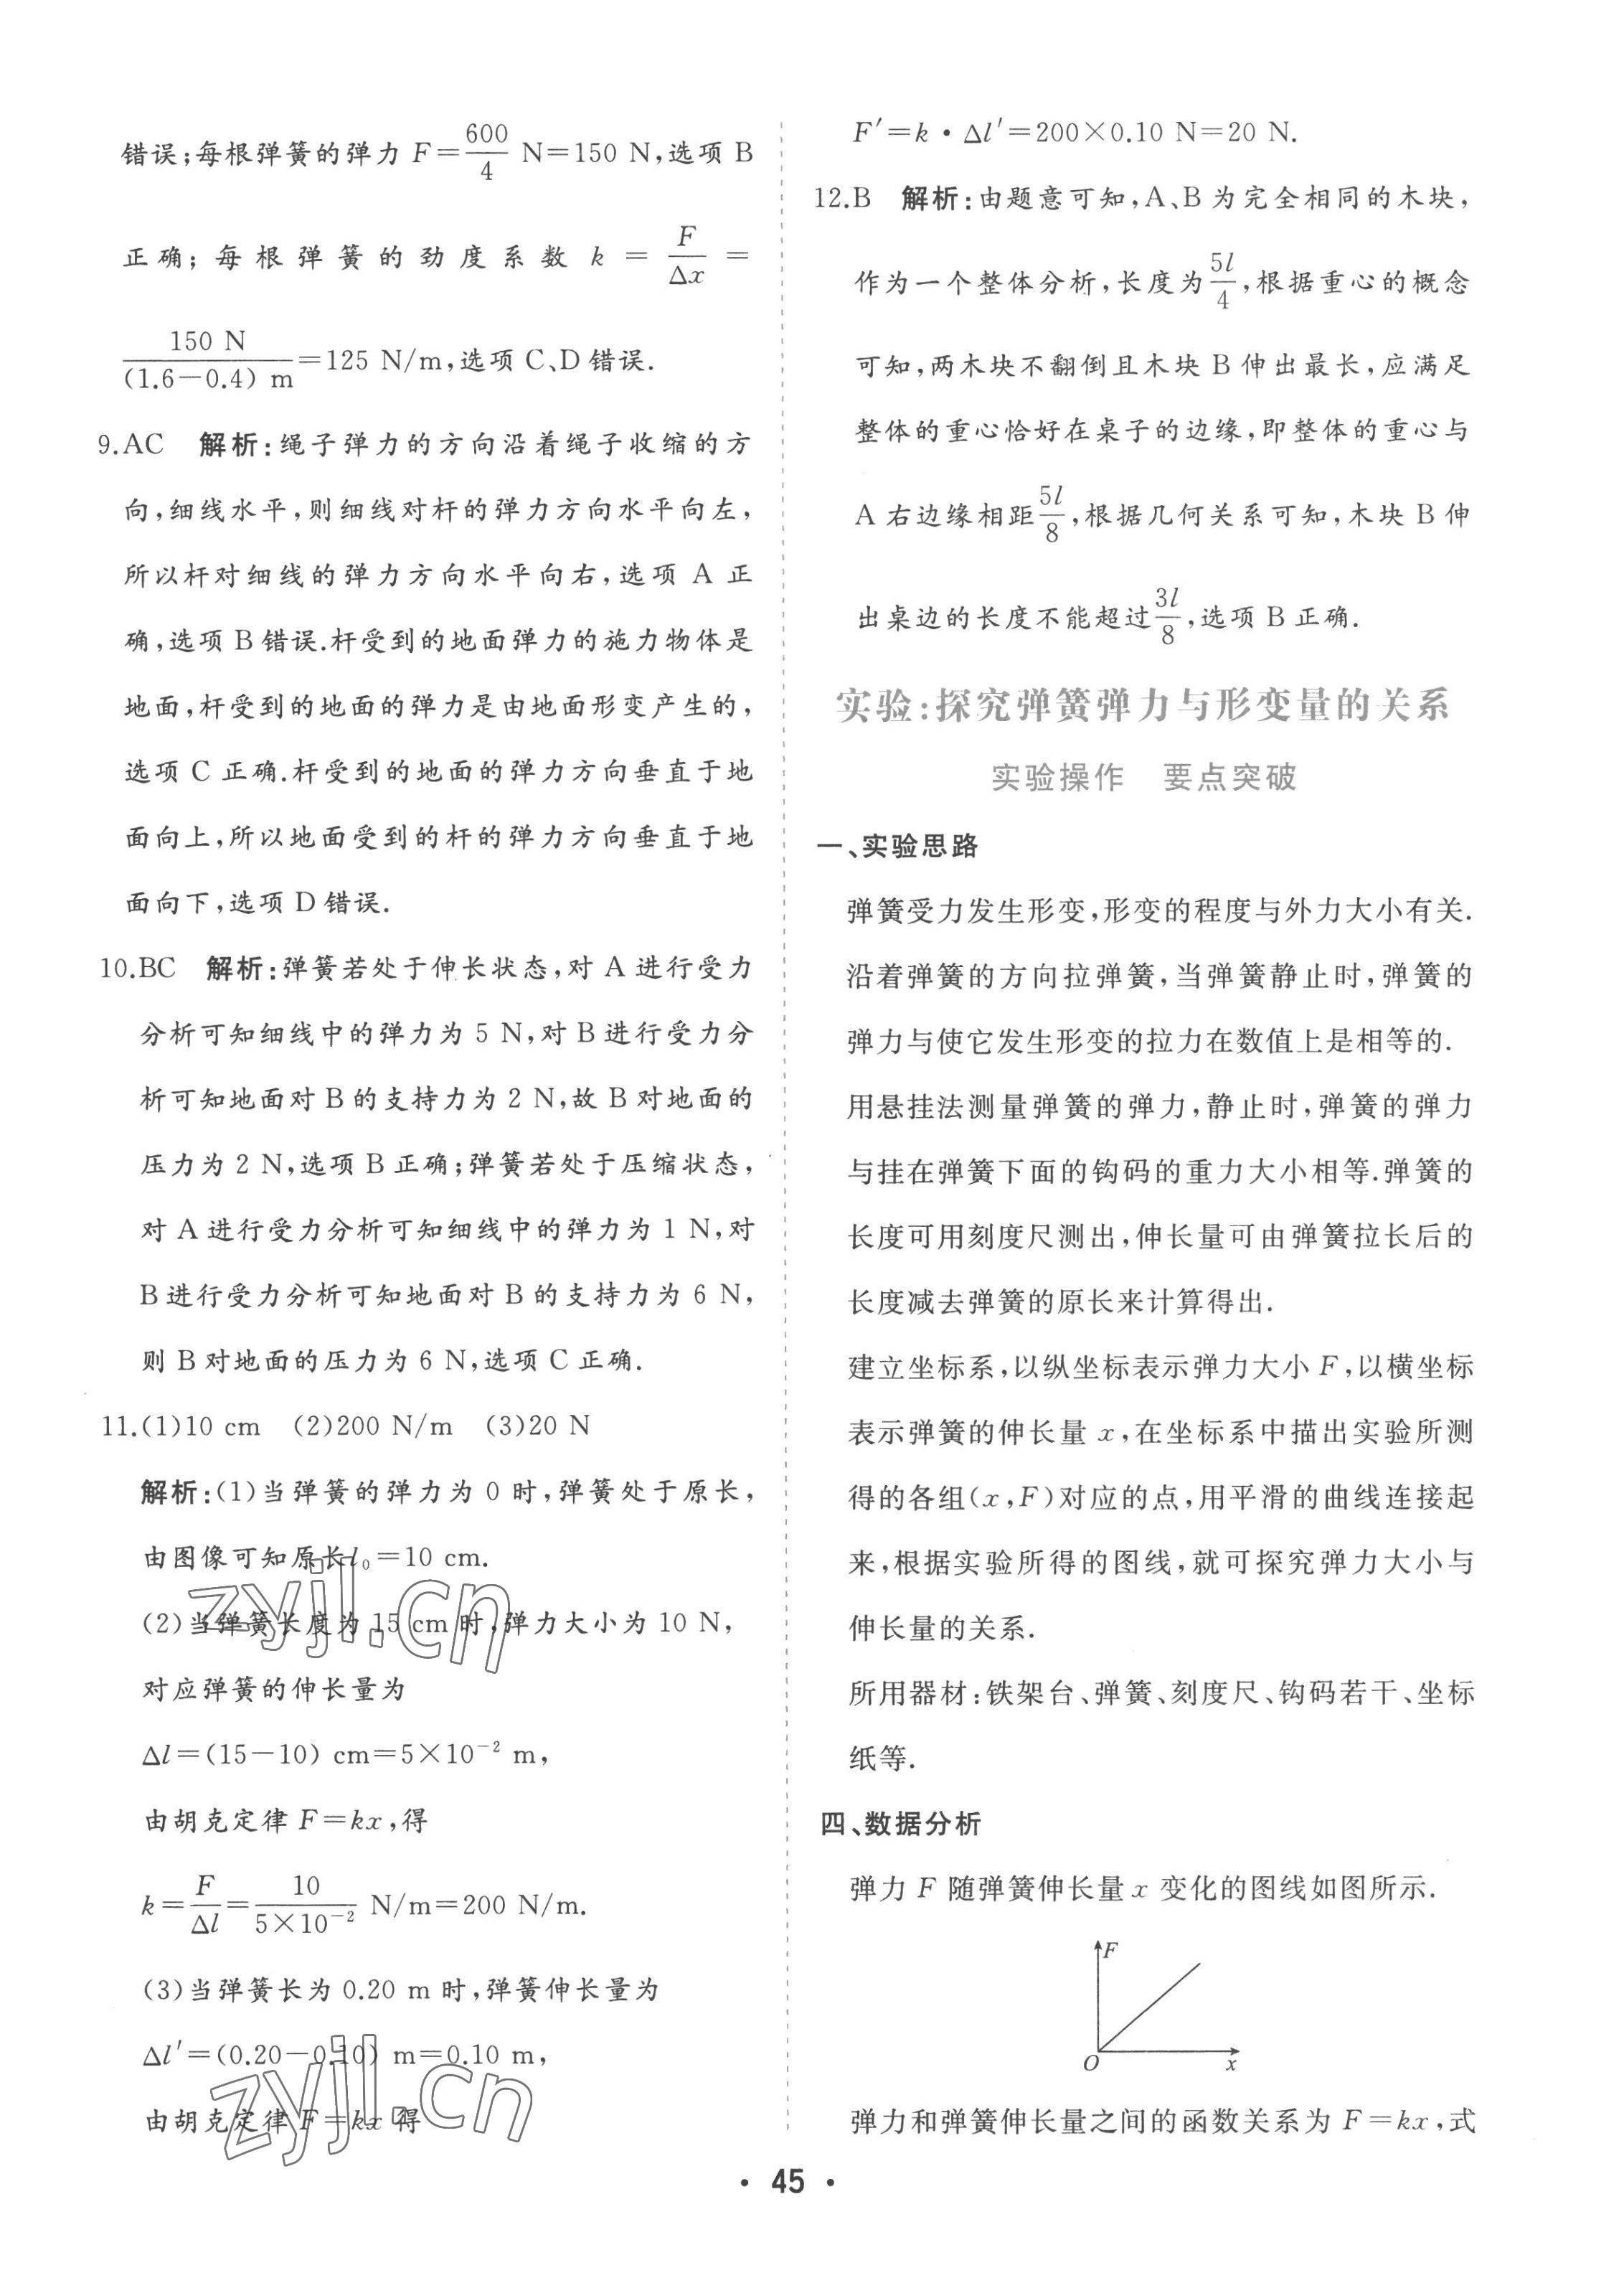 错误;每根弹簧的弹力 F=600/4 N=150 N,选项 B
正确;每根弹簧的劲度系数 k=F/Δx=
150 N/(1.6-0.4) m=125 N/m,选项 C、D 错误.
9.AC 解析:绳子弹力的方向沿着绳子收缩的方
向,细线水平,则细线对杆的弹力方向水平向左,
所以杆对细线的弹力方向水平向右,选项 A 正
确,选项 B 错误.杆受到的地面弹力的施力物体是
地面,杆受到的地面的弹力是由地面形变产生的,
选项 C 正确.杆受到的地面的弹力方向垂直于地
面向上,所以地面受到的杆的弹力方向垂直于地
面向下,选项 D 错误.
10.BC 解析:弹簧若处于伸长状态,对 A 进行受力
分析可知细线中的弹力为 5 N,对 B 进行受力分
析可知地面对 B 的支持力为 2 N,故 B 对地面的
压力为 2 N,选项 B 正确;弹簧若处于压缩状态,
对 A 进行受力分析可知细线中的弹力为 1 N,对
B 进行受力分析可知地面对 B 的支持力为 6 N,
则 B 对地面的压力为 6 N,选项 C 正确.
11.(1)10 cm (2)200 N/m (3)20 N
解析:(1)当弹簧的弹力为 0 时,弹簧处于原长,
由图像可知原长 l₀=10 cm.
(2)当弹簧长度为 15 cm 时,弹力大小为 10 N,
对应弹簧的伸长量为
Δl=(15-10) cm=5×10⁻² m,
由胡克定律 F=kx,得
k=F/Δl=10/(5×10⁻²) N/m=200 N/m.
(3)当弹簧长为 0.20 m 时,弹簧伸长量为
Δl′=(0.20-0.10) m=0.10 m,
由胡克定律 F=kx 得
zyjl.cn
zyjl.cn
F′=k·Δl′=200×0.10 N=20 N.
12.B 解析:由题意可知,A、B 为完全相同的木块,
作为一个整体分析,长度为5l/4,根据重心的概念
可知,两木块不翻倒且木块 B 伸出最长,应满足
整体的重心恰好在桌子的边缘,即整体的重心与
A 右边缘相距5l/8,根据几何关系可知,木块 B 伸
出桌边的长度不能超过3l/8,选项 B 正确.
实验:探究弹簧弹力与形变量的关系
实验操作 要点突破
一、实验思路
弹簧受力发生形变,形变的程度与外力大小有关.
沿着弹簧的方向拉弹簧,当弹簧静止时,弹簧的
弹力与使它发生形变的拉力在数值上是相等的.
用悬挂法测量弹簧的弹力,静止时,弹簧的弹力
与挂在弹簧下面的钩码的重力大小相等.弹簧的
长度可用刻度尺测出,伸长量可由弹簧拉长后的
长度减去弹簧的原长来计算得出.
建立坐标系,以纵坐标表示弹力大小 F,以横坐标
表示弹簧的伸长量 x,在坐标系中描出实验所测
得的各组(x,F)对应的点,用平滑的曲线连接起
来,根据实验所得的图线,就可探究弹力大小与
伸长量的关系.
所用器材:铁架台、弹簧、刻度尺、钩码若干、坐标
纸等.
四、数据分析
弹力 F 随弹簧伸长量 x 变化的图线如图所示.
F
O x
弹力和弹簧伸长量之间的函数关系为 F=kx,式
· 45 ·